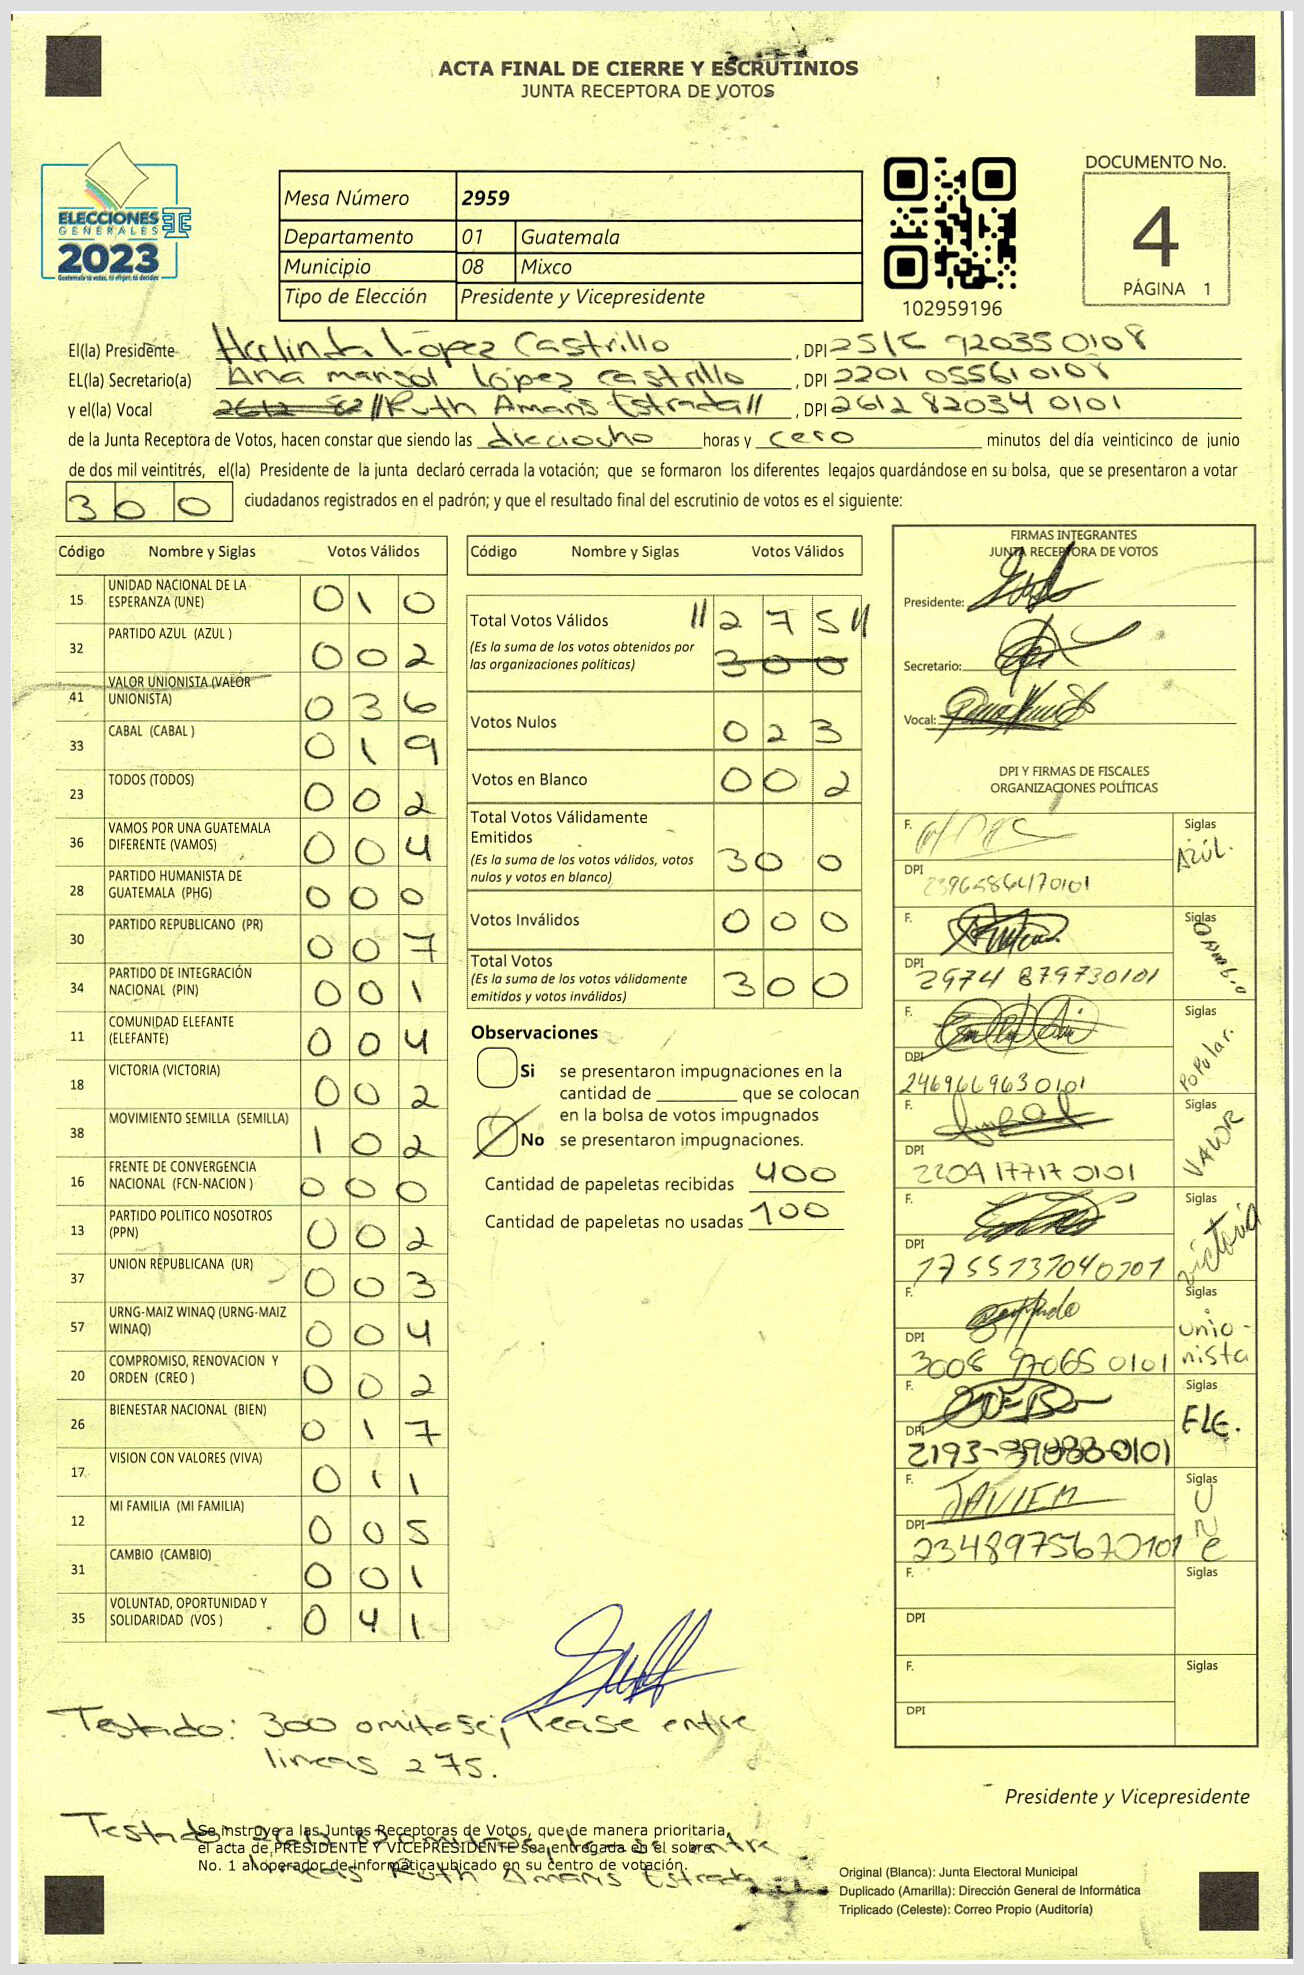 ACTA FINAL DE CIERRE Y ESCRUTINIOS
JUNTA RECEPTORA DE VOTOS
ELECCIONES
GENERALES
2023
Guatemala tú votas, tú eliges, tú decides
Mesa Número 2959
Departamento 01 Guatemala
Municipio 08 Mixco
Tipo de Elección Presidente y Vicepresidente
102959196
DOCUMENTO No.
4
PÁGINA 1
El(la) Presidente Herlinda López Castrillo , DPI 920350108
EL(la) Secretario(a) Ana marisol López castrillo , DPI 2201 05561 0108
y el(la) Vocal 2612 82 //Ruth Amaris Estrada// , DPI 2612 82034 0101
de la Junta Receptora de Votos, hacen constar que siendo las dieciocho horas y cero minutos del día veinticinco de junio
de dos mil veintitrés, el(la) Presidente de la junta declaró cerrada la votación; que se formaron los diferentes legajos quardándose en su bolsa, que se presentaron a votar
300 ciudadanos registrados en el padrón; y que el resultado final del escrutinio de votos es el siguiente:
Código Nombre y Siglas Votos Válidos
15 UNIDAD NACIONAL DE LA ESPERANZA (UNE) 0 1 0
32 PARTIDO AZUL (AZUL ) 0 0 2
41 VALOR UNIONISTA (VALOR UNIONISTA) 0 3 6
33 CABAL (CABAL ) 0 1 9
23 TODOS (TODOS) 0 0 2
36 VAMOS POR UNA GUATEMALA DIFERENTE (VAMOS) 0 0 4
28 PARTIDO HUMANISTA DE GUATEMALA (PHG) 0 0 0
30 PARTIDO REPUBLICANO (PR) 0 0 7
34 PARTIDO DE INTEGRACIÓN NACIONAL (PIN) 0 0 1
11 COMUNIDAD ELEFANTE (ELEFANTE) 0 0 4
18 VICTORIA (VICTORIA) 0 0 2
38 MOVIMIENTO SEMILLA (SEMILLA) 1 0 2
16 FRENTE DE CONVERGENCIA NACIONAL (FCN-NACION ) 0 0 0
13 PARTIDO POLITICO NOSOTROS (PPN) 0 0 2
37 UNION REPUBLICANA (UR) 0 0 3
57 URNG-MAIZ WINAQ (URNG-MAIZ WINAQ) 0 0 4
20 COMPROMISO, RENOVACION Y ORDEN (CREO ) 0 0 2
26 BIENESTAR NACIONAL (BIEN) 0 1 7
17 VISION CON VALORES (VIVA) 0 1 1
12 MI FAMILIA (MI FAMILIA) 0 0 5
31 CAMBIO (CAMBIO) 0 0 1
35 VOLUNTAD, OPORTUNIDAD Y SOLIDARIDAD (VOS ) 0 4 1
Código Nombre y Siglas Votos Válidos
Total Votos Válidos // 2 7 5 //
(Es la suma de los votos obtenidos por
las organizaciones políticas) 3 0 0
Votos Nulos 0 2 3
Votos en Blanco 0 0 2
Total Votos Válidamente
Emitidos
(Es la suma de los votos válidos, votos
nulos y votos en blanco) 3 0 0
Votos Inválidos 0 0 0
Total Votos
(Es la suma de los votos válidamente
emitidos y votos inválidos) 3 0 0
Observaciones
Si se presentaron impugnaciones en la
cantidad de ________ que se colocan
en la bolsa de votos impugnados
No se presentaron impugnaciones.
Cantidad de papeletas recibidas 400
Cantidad de papeletas no usadas 100
FIRMAS INTEGRANTES
JUNTA RECEPTORA DE VOTOS
Presidente:
Secretario:
Vocal:
DPI Y FIRMAS DE FISCALES
ORGANIZACIONES POLÍTICAS
F. Siglas AZUL.
DPI
F. Siglas
DPI 2974 879730101
F. Siglas Popular.
DPI 2469669630101
F. Siglas VALOR
DPI 2204 17717 0101
F. Siglas victoria
DPI 1755137040101
F. Siglas Unio-
nista
DPI 3008 97065 0101
F. Siglas ELE.
DPI
F. JAVIEM Siglas UNe
DPI 2348975670101
F. Siglas
DPI
F. Siglas
DPI
Testado: 300 omitase; lease entre
lineas 275.
Presidente y Vicepresidente
Testado 2612 82 omitase, lease entre
lineas Ruth Amaris Estrada
Se instruye a las Juntas Receptoras de Votos, que de manera prioritaria,
el acta de PRESIDENTE Y VICEPRESIDENTE sea entregada en el sobre
No. 1 al operador de informática ubicado en su centro de votación.
Original (Blanca): Junta Electoral Municipal
Duplicado (Amarilla): Dirección General de Informática
Triplicado (Celeste): Correo Propio (Auditoría)